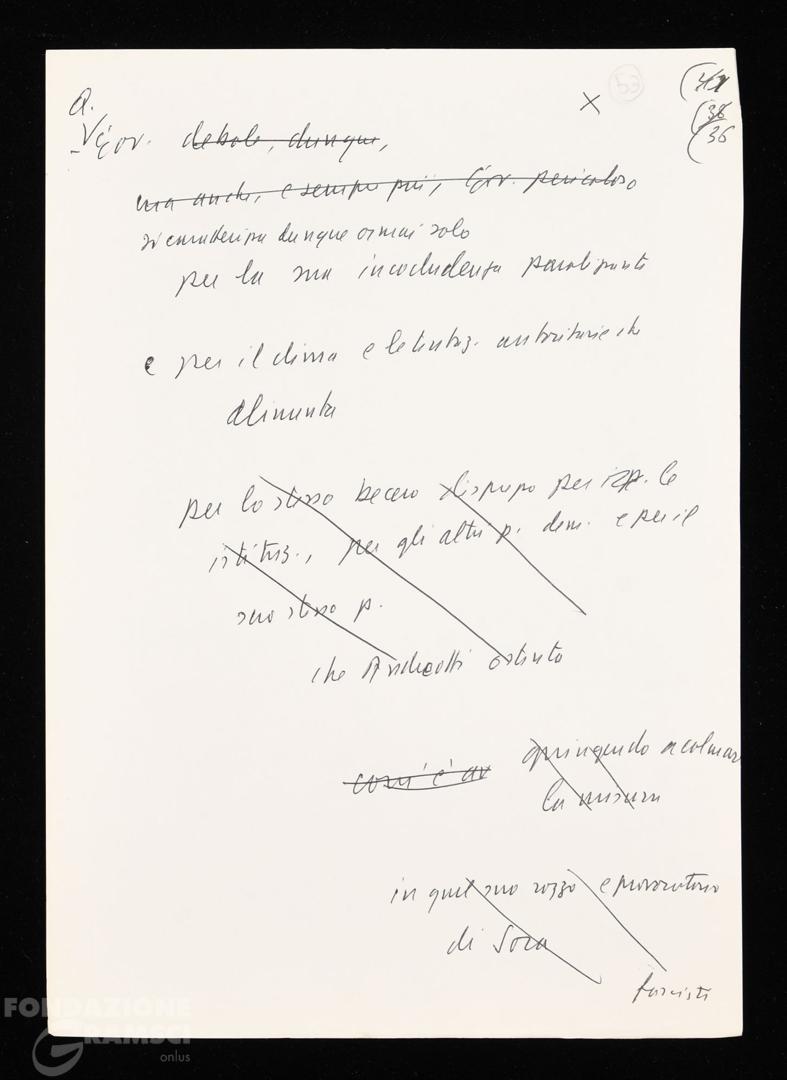 a.
Gov. debole, dunque,
ma anche, e sempre più, Gov. pericoloso
si caratterizza dunque ormai solo
per la sua paralizzante
e per il clima e le tentaz. autoritarie che
alimenta
per lo stesso becero disprezzo per le
istituz., per gli altri p. dem. e per il
suo stesso p.
che Andreotti ostenta
com'è av
giungendo a colmar
la misura
in quel suo rozzo e provocatorio
di Sora
fascisti
53
X
38
36
FONDAZIONE
GRAMSCI
onlus